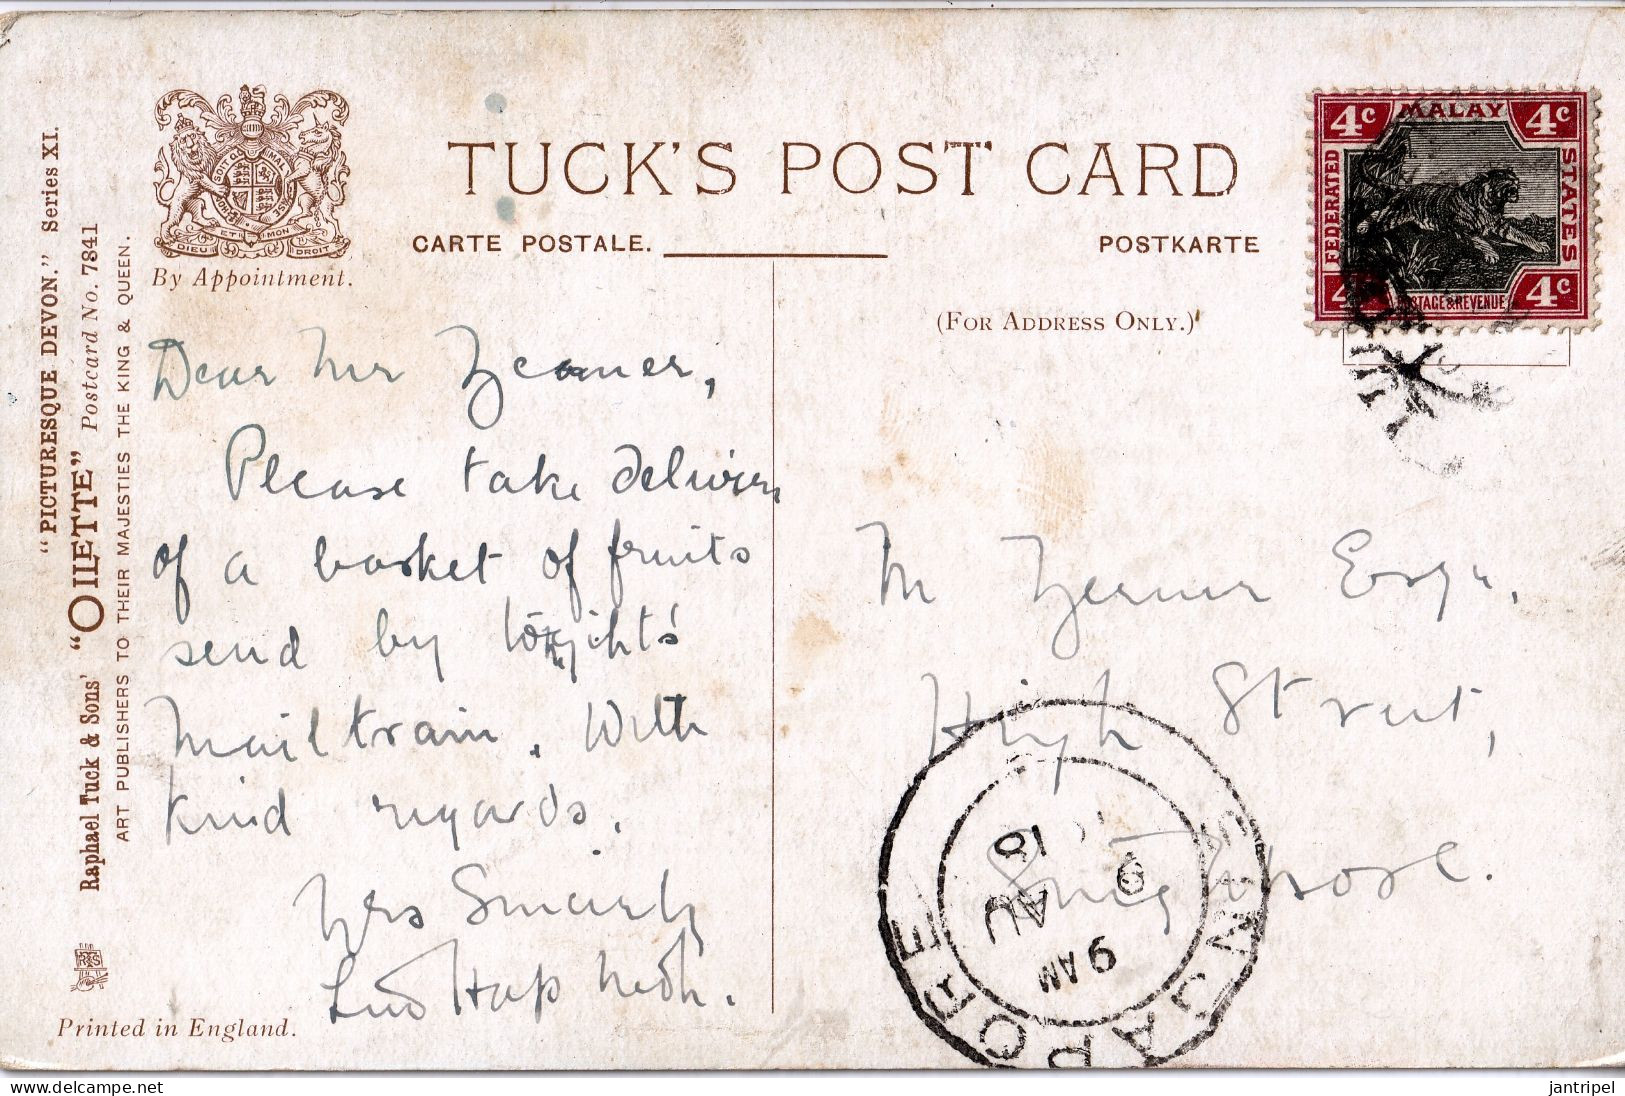 "PICTURESQUE DEVON." Series XI.
Raphael Tuck & Sons' "OILETTE" Postcard No. 7841
ART PUBLISHERS TO THEIR MAJESTIES THE KING & QUEEN.
DIEU ET MON DROIT
By Appointment.
TUCK'S POST CARD
CARTE POSTALE.
POSTKARTE
(FOR ADDRESS ONLY.)
4c MALAY 4c
FEDERATED
STATES
4c POSTAGE & REVENUE 4c
Dear Mr
Please take delivery
of a basket of fruits
send by tonight's
Mail train. With
kind regards.
Yrs Sincerely
M Esqr.
High Street,
Singapore.
SINGAPORE
9 AM
9
AU
10
R T & S
Printed in England.
jantripel